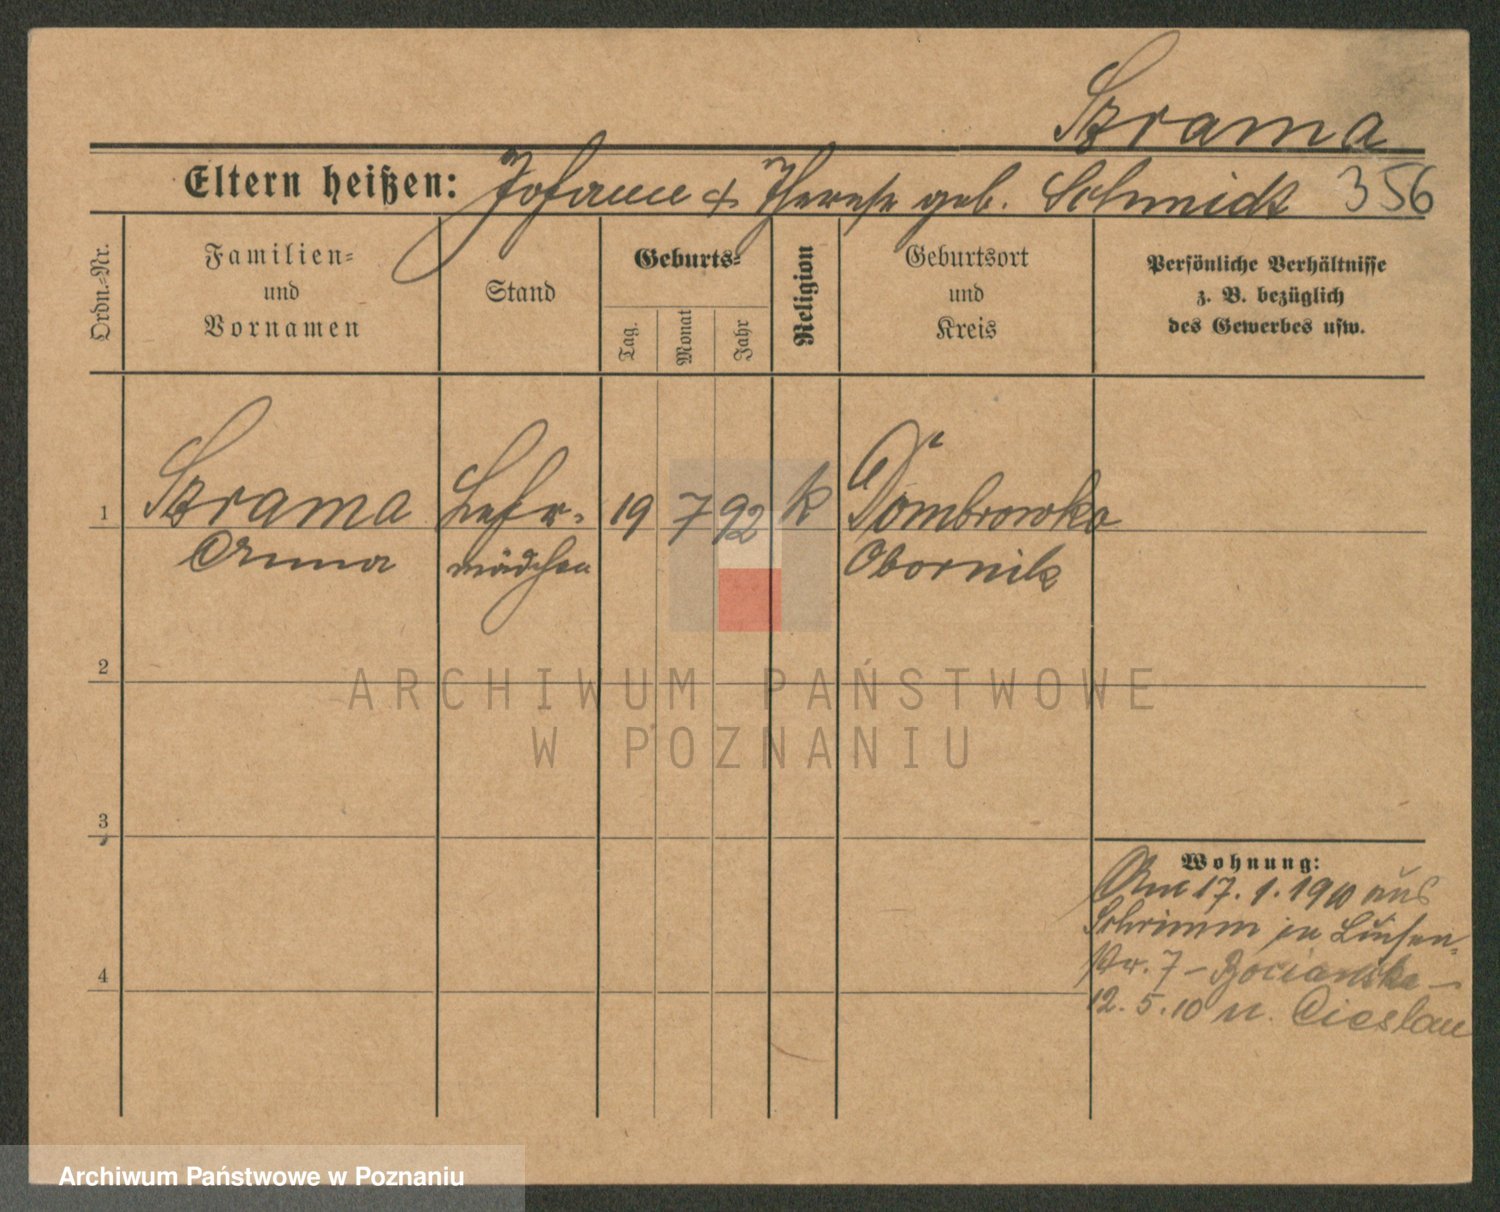 Szrama
Eltern heißen: Johann & Therese geb. Schmidt 356
Ordn.-Nr.
Familien-
und
Vornamen
Stand
Geburts-
Tag.
Monat
Jahr
Religion
Geburtsort
und
Kreis
Persönliche Verhältnisse
z. B. bezüglich
des Gewerbes usw.
1 Szrama Lehr- 19 7 92 k Dombrowka
Anna mädchen Obornik
2
ARCHIWUM PAŃSTWOWE
W POZNANIU
3
Wohnung:
Am 17.1.1910 aus
Schrimm in Luisen-
str. 7 - Bocianska -
4
12.5.10 n. Cieslau
Archiwum Państwowe w Poznaniu